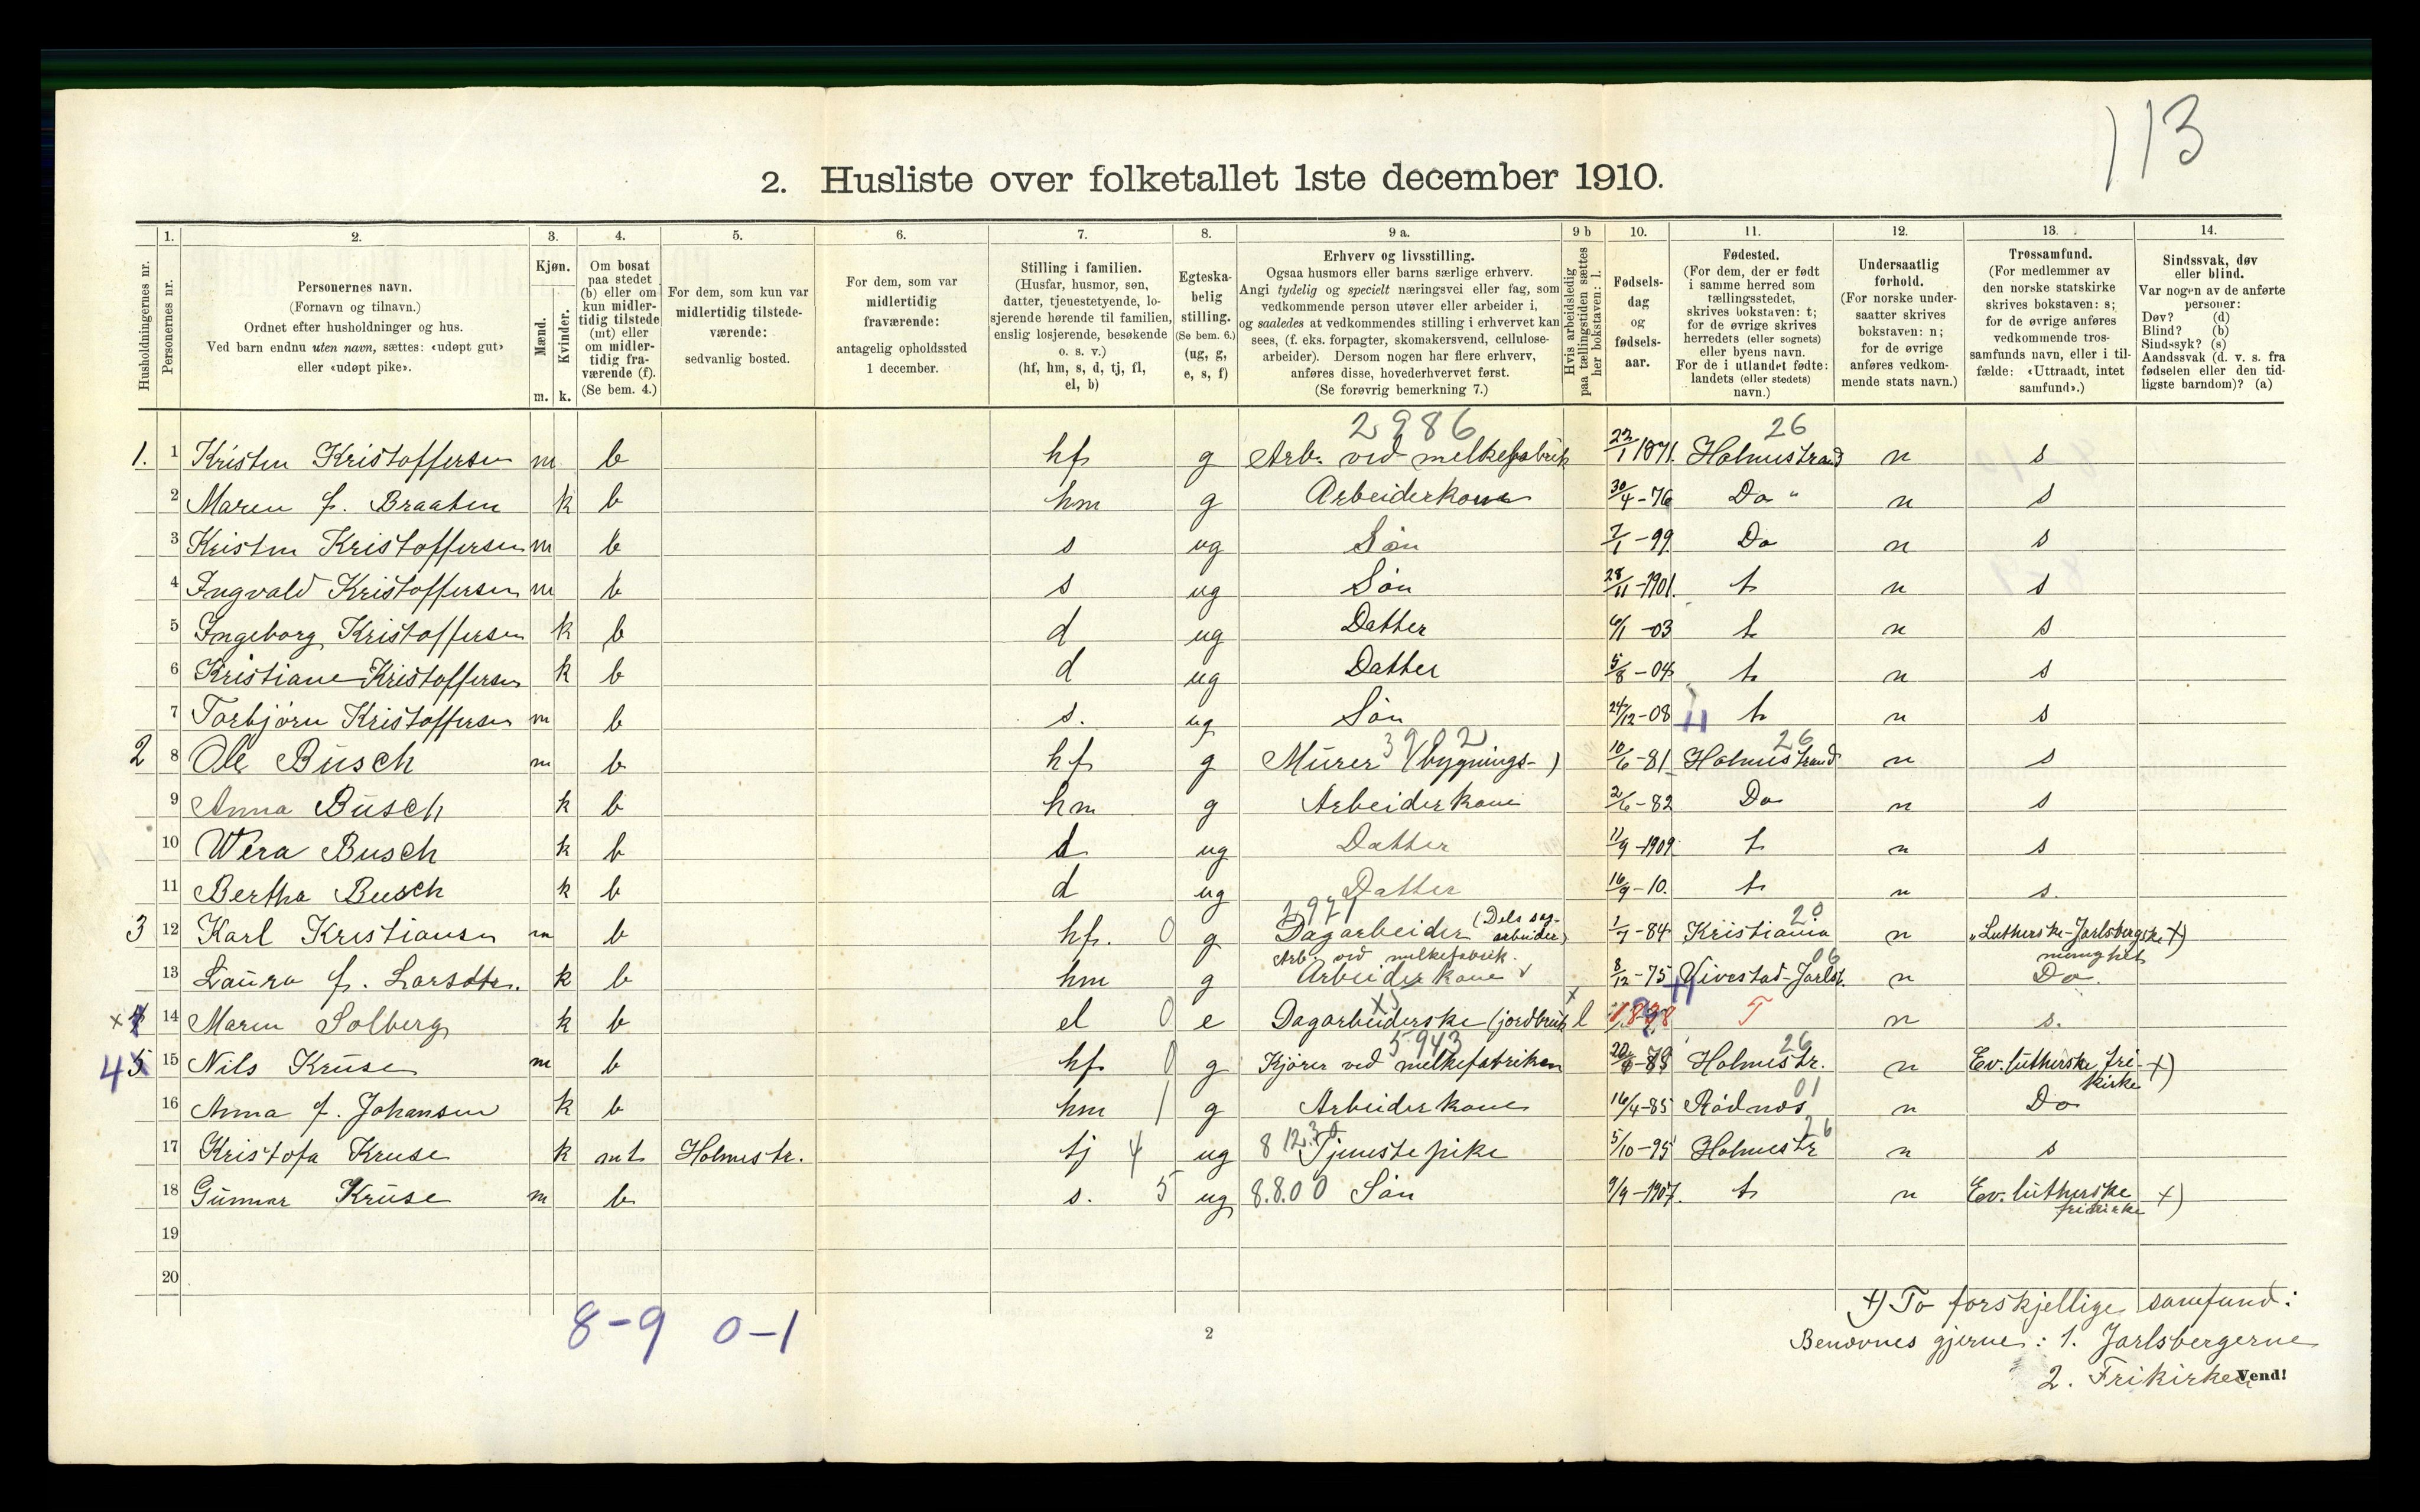 113
2. Husliste over folketallet 1ste december 1910.
Husholdningernes nr.
1. Personernes nr.
2. Personernes navn.
(Fornavn og tilnavn.)
Ordnet efter husholdninger og hus.
Ved barn endnu uten navn, sættes: «udøpt gut»
eller «udøpt pike».
3. Kjøn.
Mænd. Kvinder.
m. k.
4. Om bosat
paa stedet
(b) eller om
kun midler-
tidig tilstede
(mt) eller
om midler-
tidig fra-
værende (f).
(Se bem. 4.)
5. For dem, som kun var
midlertidig tilstede-
værende:
sedvanlig bosted.
6. For dem, som var
midlertidig
fraværende:
antagelig opholdssted
1 december.
7. Stilling i familien.
(Husfar, husmor, søn,
datter, tjenestetyende, lo-
sjerende hørende til familien,
enslig losjerende, besøkende
o. s. v.)
(hf, hm, s, d, tj, fl,
el, b)
8. Egteska-
belig
stilling.
(Se bem. 6.)
(ug, g,
e, s, f)
9 a. Erhverv og livsstilling.
Ogsaa husmors eller barns særlige erhverv.
Angi tydelig og specielt næringsvei eller fag, som
vedkommende person utøver eller arbeider i,
og saaledes at vedkommendes stilling i erhvervet kan
sees, (f. eks. forpagter, skomakersvend, cellulose-
arbeider). Dersom nogen har flere erhverv,
anføres disse, hovederhvervet først.
(Se forøvrig bemerkning 7.)
9 b Hvis arbeidsledig
paa tællingstiden sættes
her bokstaven: l.
10. Fødsels-
dag
og
fødsels-
aar.
11. Fødested.
(For dem, der er født
i samme herred som
tællingsstedet,
skrives bokstaven: t;
for de øvrige skrives
herredets (eller sognets)
eller byens navn.
For de i utlandet fødte:
landets (eller stedets)
navn.)
12. Undersaatlig
forhold.
(For norske under-
saatter skrives
bokstaven: n;
for de øvrige
anføres vedkom-
mende stats navn.)
13. Trossamfund.
(For medlemmer av
den norske statskirke
skrives bokstaven: s;
for de øvrige anføres
vedkommende tros-
samfunds navn, eller i til-
fælde: «Uttraadt, intet
samfund».)
14. Sindssvak, døv
eller blind.
Var nogen av de anførte
personer:
Døv? (d)
Blind? (b)
Sindssyk? (s)
Aandssvak (d. v. s. fra
fødselen eller den tid-
ligste barndom)? (a)
2986 26
1. 1 Kristen Kristoffersen m b hf g Arb. ved melkefabrik 22/1 1871. Holmestrand n s
2 Maren f. Braaten k b hm g Arbeiderkone 30/4-76 Do " n s
3 Kristen Kristoffersen m b s ug Søn 7/1-99 Do n s
4 Ingvald Kristoffersen m b s ug Søn 28/11-1901. t n s
5 Ingeborg Kristoffersen k b d ug Datter 6/1-03 t n s
6 Kristiane Kristoffersen k b d ug Datter 5/8-04 t n s
7 Torbjørn Kristoffersen m b s. ug Søn 24/12-08 t n s
3902 26
2 8 Ole Busch m b hf g Murer (bygnings-) 10/6-81 Holmestrand n s
9 Anna Busch k b hm g Arbeiderkone 2/6-82 Do n s
10 Wera Busch k b d ug Datter 11/9-1909. t n s
11 Bertha Busch k b d ug Datter 16/9-10. t n s.
3 12 Karl Kristiansen m b hf. 0 g Dagarbeider (Dels sag-
arbeider) 1/7-84 Kristiania 20 n "Lutherske-Jarlsbergske +)
menighet
Arb. ved melkefabrik.
13 Laura f. Larsdtr. k b hm g Arbeiderkone 8/12-75 Vivestad-Jarlsb. 06 n Do.
x 14 Maren Solberg k b el 0 e Dagarbeiderske (jordbruk l T n s.
5943 26
4 5 15 Nils Kruse m b hf 0 g Kjører ved melkefabriken Holmestr. n Ev. lutherske fri-
kirke +)
16 Anna f. Johansen k b hm 1 g Arbeiderkone 16/4-85 Raadnes 01 n Do
17 Kristofa Kruse k mt Holmestr. tj 4 ug Tjenestepike 5/10-95 Holmestr 26 n s
18 Gunnar Kruse m b s. 5 ug 8.8.00 Søn 9/9-1907. t n Ev. lutherske
frikirke +)
19
20
8-9 0-1
2
+) To forskjellige samfund:
Benævnes gjerne: 1. Jarlsbergerne
2. Frikirken
Vend!